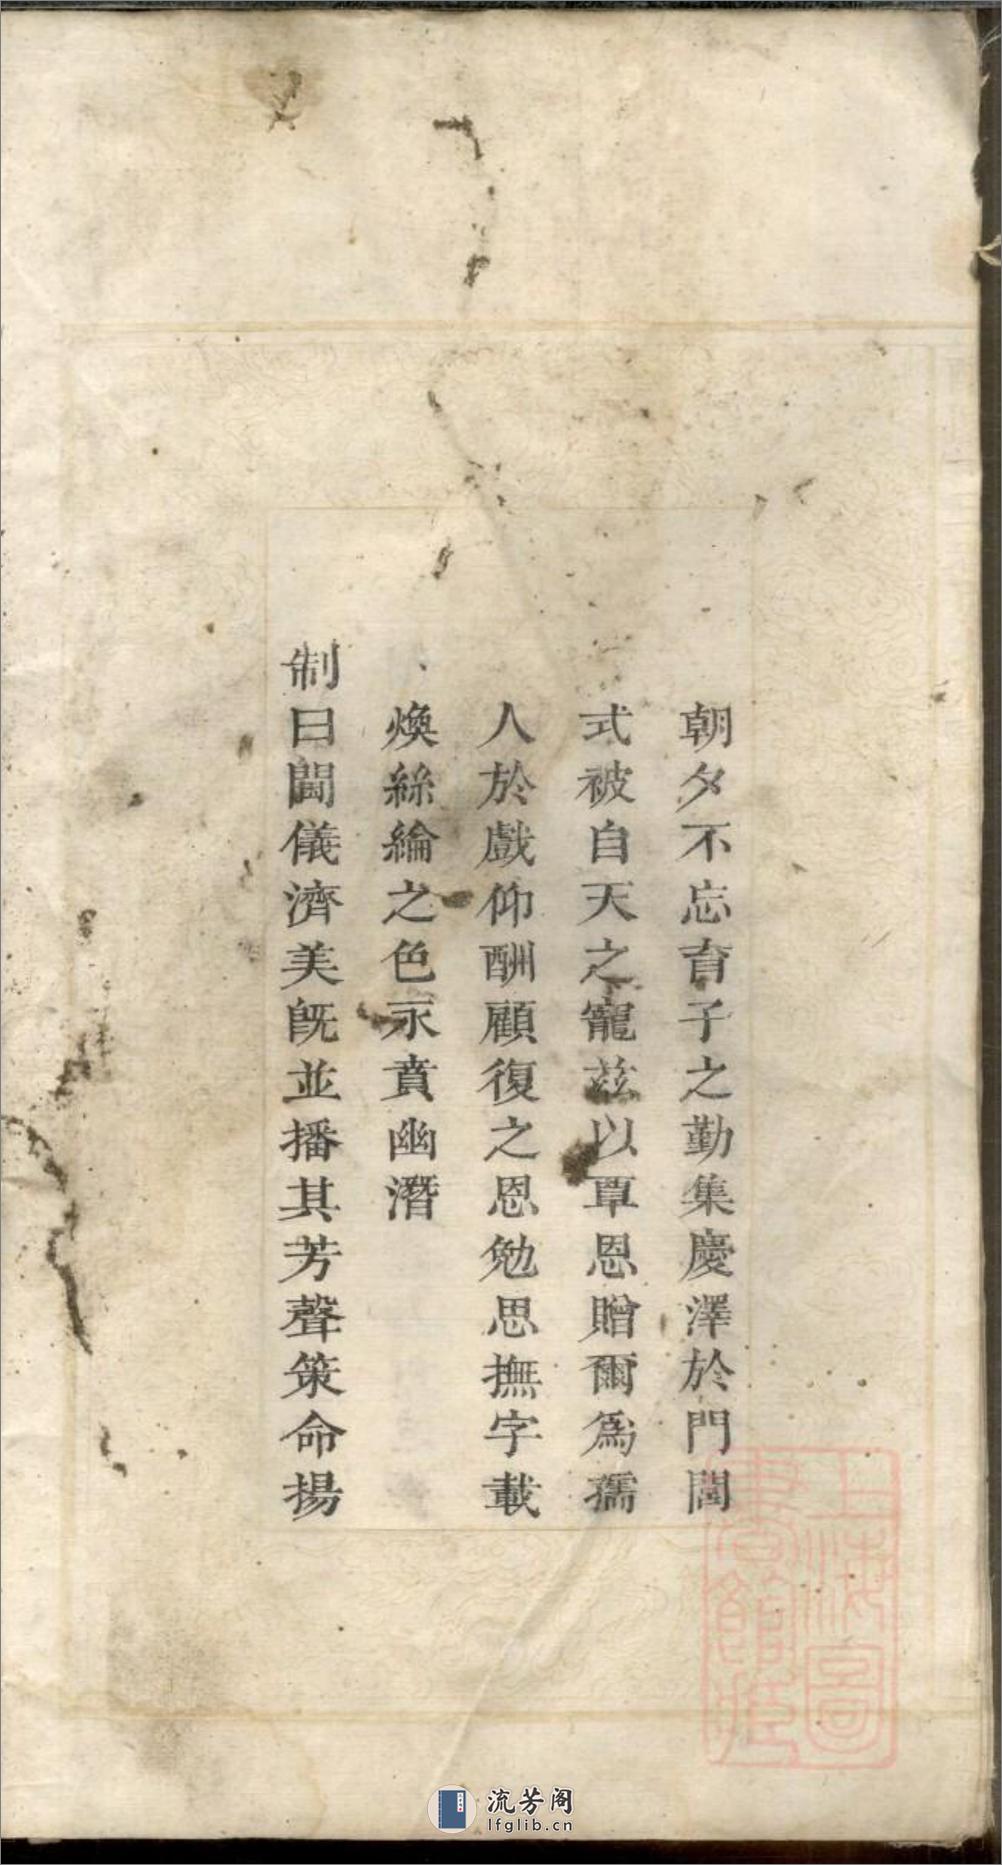 朝夕不忘育子之勤集慶澤於門閭
式被自天之寵茲以覃恩贈爾為孺
人於戲仰酬顧復之恩勉思撫字載
煥絲綸之色永賁幽潛
制曰閫儀濟美旣並播其芳聲策命揚
上海圖
書館藏
流芳阁
lfglib.cn